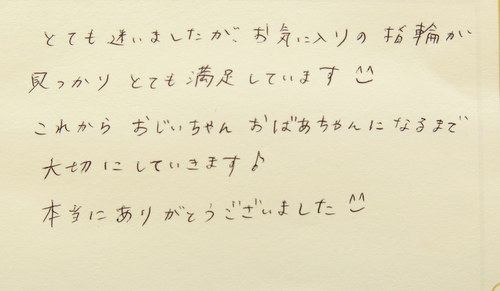 とても迷いましたが、お気に入りの指輪が
見つかりとても満足しています^^
これからおじいちゃんおばあちゃんになるまで
大切にしていきます♪
本当にありがとうございました^^